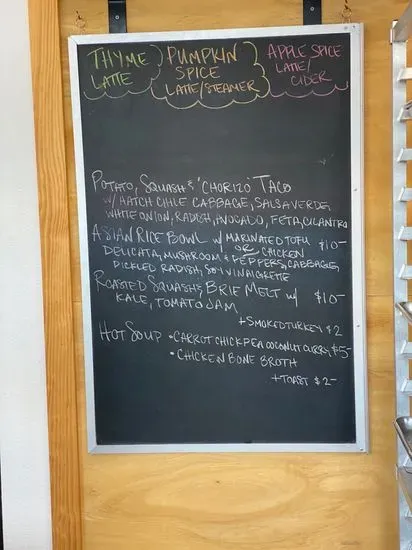 THYME LATTE
PUMPKIN SPICE LATTE/STEAMER
APPLE SPICE LATTE/ CIDER
POTATO, SQUASH & "CHORIZO" TACO
W/ HATCH CHILE CABBAGE, SALSA VERDE,
WHITE ONION, RADISH, AVOCADO, FETA, CILANTRO
ASIAN RICE BOWL W/ MARINATED TOFU $10-
OR CHICKEN
DELICATA, MUSHROOM & PEPPERS, CABBAGE,
PICKLED RADISH, SOY VINAIGRETTE
ROASTED SQUASH & BRIE MELT W/ $10-
KALE, TOMATO JAM
+ SMOKED TURKEY $2
HOT SOUP • CARROT CHICKPEA COCONUT CURRY $5-
• CHICKEN BONE BROTH
+ TOAST $2-